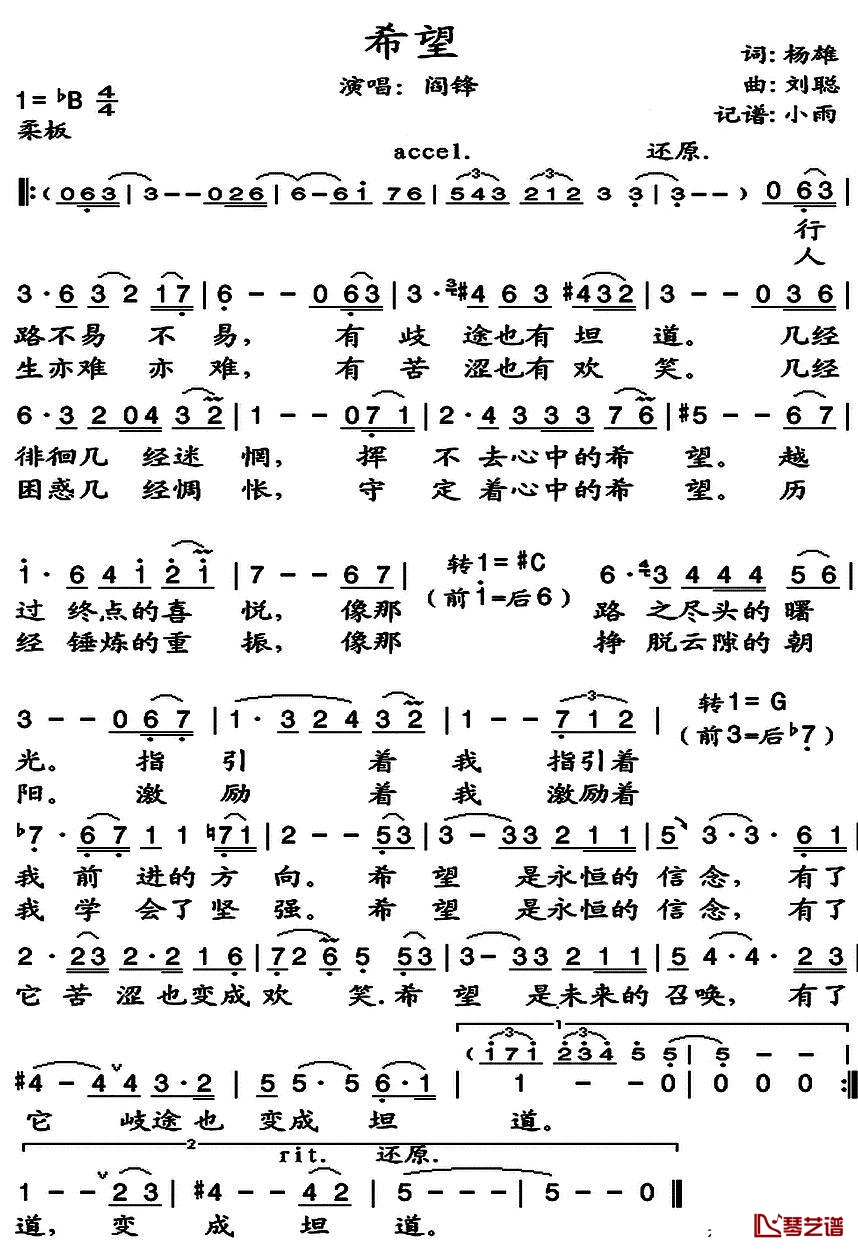 希望
词: 杨雄
演唱: 阎锋
曲: 刘聪
1= ♭B 4/4
记谱: 小雨
柔板
accel. 还原.
‖: ( 0 6 3 | 3 - - 0 2 6 | 6 - 6 i 7 6 | 5 4 3 2 1 2 3 3 | 3 - - ) 0 6 3 |
行
人
3 · 6 3 2 1 7 | 6 - - 0 6 3 | 3 · #4 6 3 #4 3 2 | 3 - - 0 3 6 |
路不易 不 易, 有 歧 途也有 坦 道。 几经
生亦难 亦 难, 有 苦 涩也有 欢 笑。 几经
6 · 3 2 0 4 3 2 | 1 - - 0 7 1 | 2 · 4 3 3 3 7 6 | #5 - - 6 7 |
徘徊几 经迷 惘, 挥 不 去心中的希 望。 越
困惑几 经惆 怅, 守 定 着心中的希 望。 历
转1= #C
i · 6 4 i 2 i | 7 - - 6 7 | (前i=后6) 6 · 3 4 4 4 5 6 |
过 终点的喜 悦, 像那 路 之尽头的 曙
经 锤炼的重 振, 像那 挣 脱云隙的 朝
转1= G
3 - - 0 6 7 | 1 · 3 2 4 3 2 | 1 - - 7 1 2 | (前3=后♭7)
光。 指 引 着 我 指引着
阳。 激 励 着 我 激励着
♭7 · 6 7 1 1 ♮7 1 | 2 - - 5 3 | 3 - 3 3 2 1 1 | 5 3 · 3 · 6 1 |
我 前 进的 方 向。 希 望 是永恒的 信 念, 有了
我 学 会了 坚 强。 希 望 是永恒的 信 念, 有了
2 · 2 3 2 · 2 1 6 | 7 2 6 5 5 3 | 3 - 3 3 2 1 1 | 5 4 · 4 · 2 3 |
它 苦 涩也变成 欢 笑.希 望 是未来的 召唤, 有了
1
( i 7 i 2 3 4 5 5 | 5 - - |
#4 - 4 4 3 · 2 | 5 5 · 5 6 · 1 | 1 - 0 | 0 0 0 :‖
它 歧途也 变成 坦 道。
2
rit. 还原.
1 - - 2 3 | #4 - - 4 2 | 5 - - - | 5 - 0 ‖
道, 变 成 坦 道。
琴艺谱